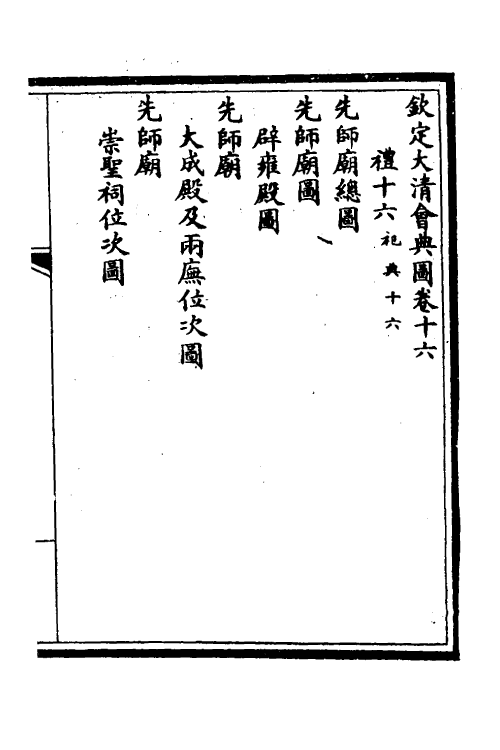 欽定大清會典圖卷十六
禮十六祀典十六
先師廟總圖
先師廟圖
辟雍殿圖
先師廟
大成殿及兩廡位次圖
先師廟
崇聖祠位次圖